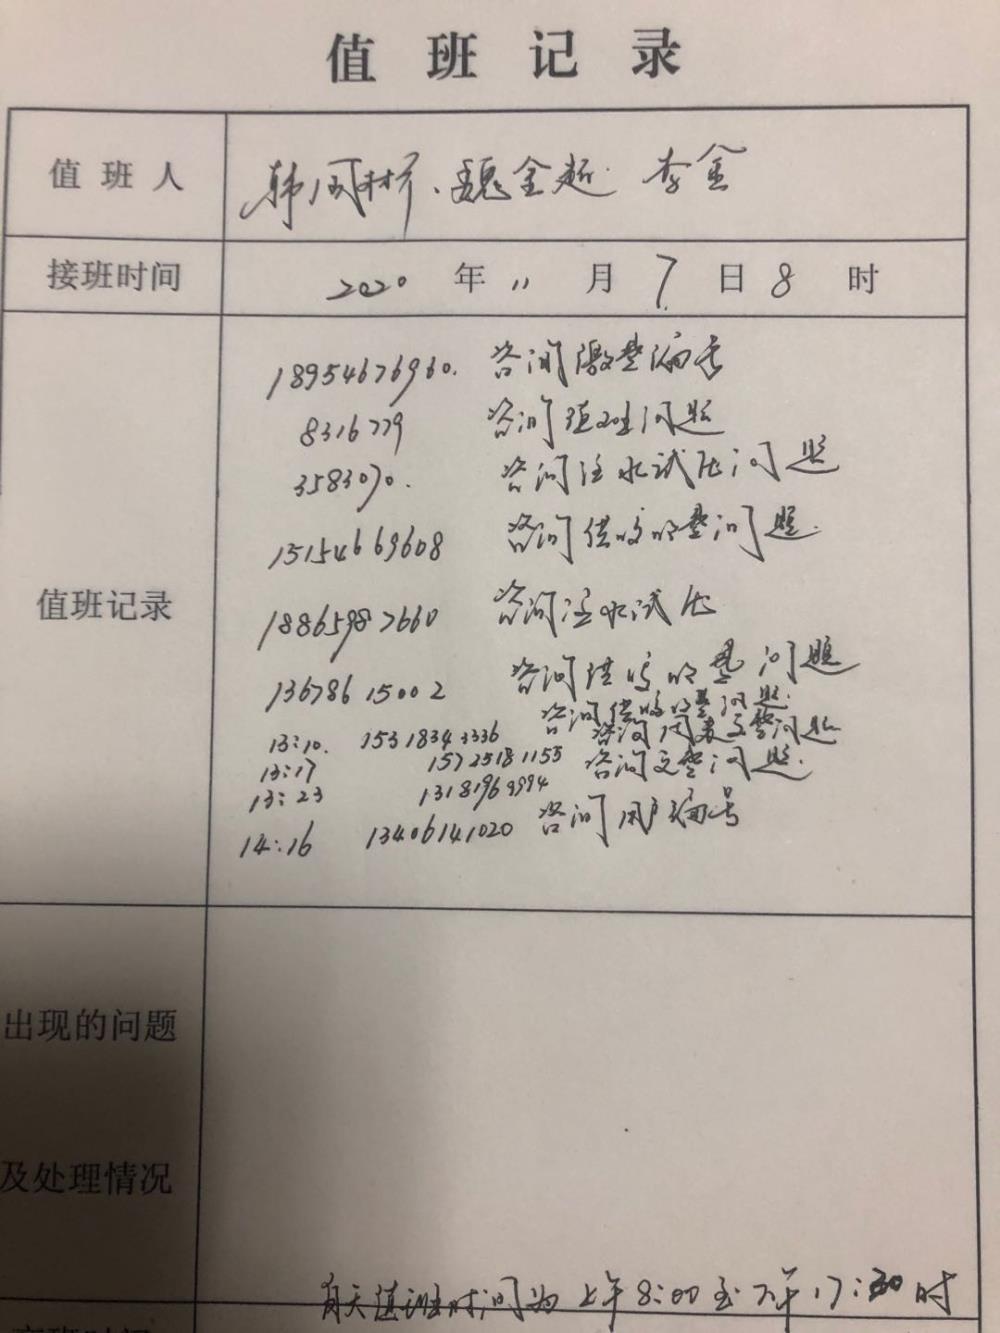 值班记录
值班人 韩凤林、魏金超 李金
接班时间 2020年11月7日8时
值班记录
18954676960. 咨询缴费编号
8316779 咨询 问题
3583070. 咨询注水试压问题
15154669608 咨询供暖收费问题.
18865987660 咨询注水试压
13678615002 咨询供暖收费问题
13:10. 15318343336 咨询供暖收费问题.
13:17 15725181155 咨询 交费问题
13:23 13181969994 咨询交费问题.
14:16 13406141020 咨询用户编号
出现的问题
及处理情况
值班时间为上午8:00至下午17:30时